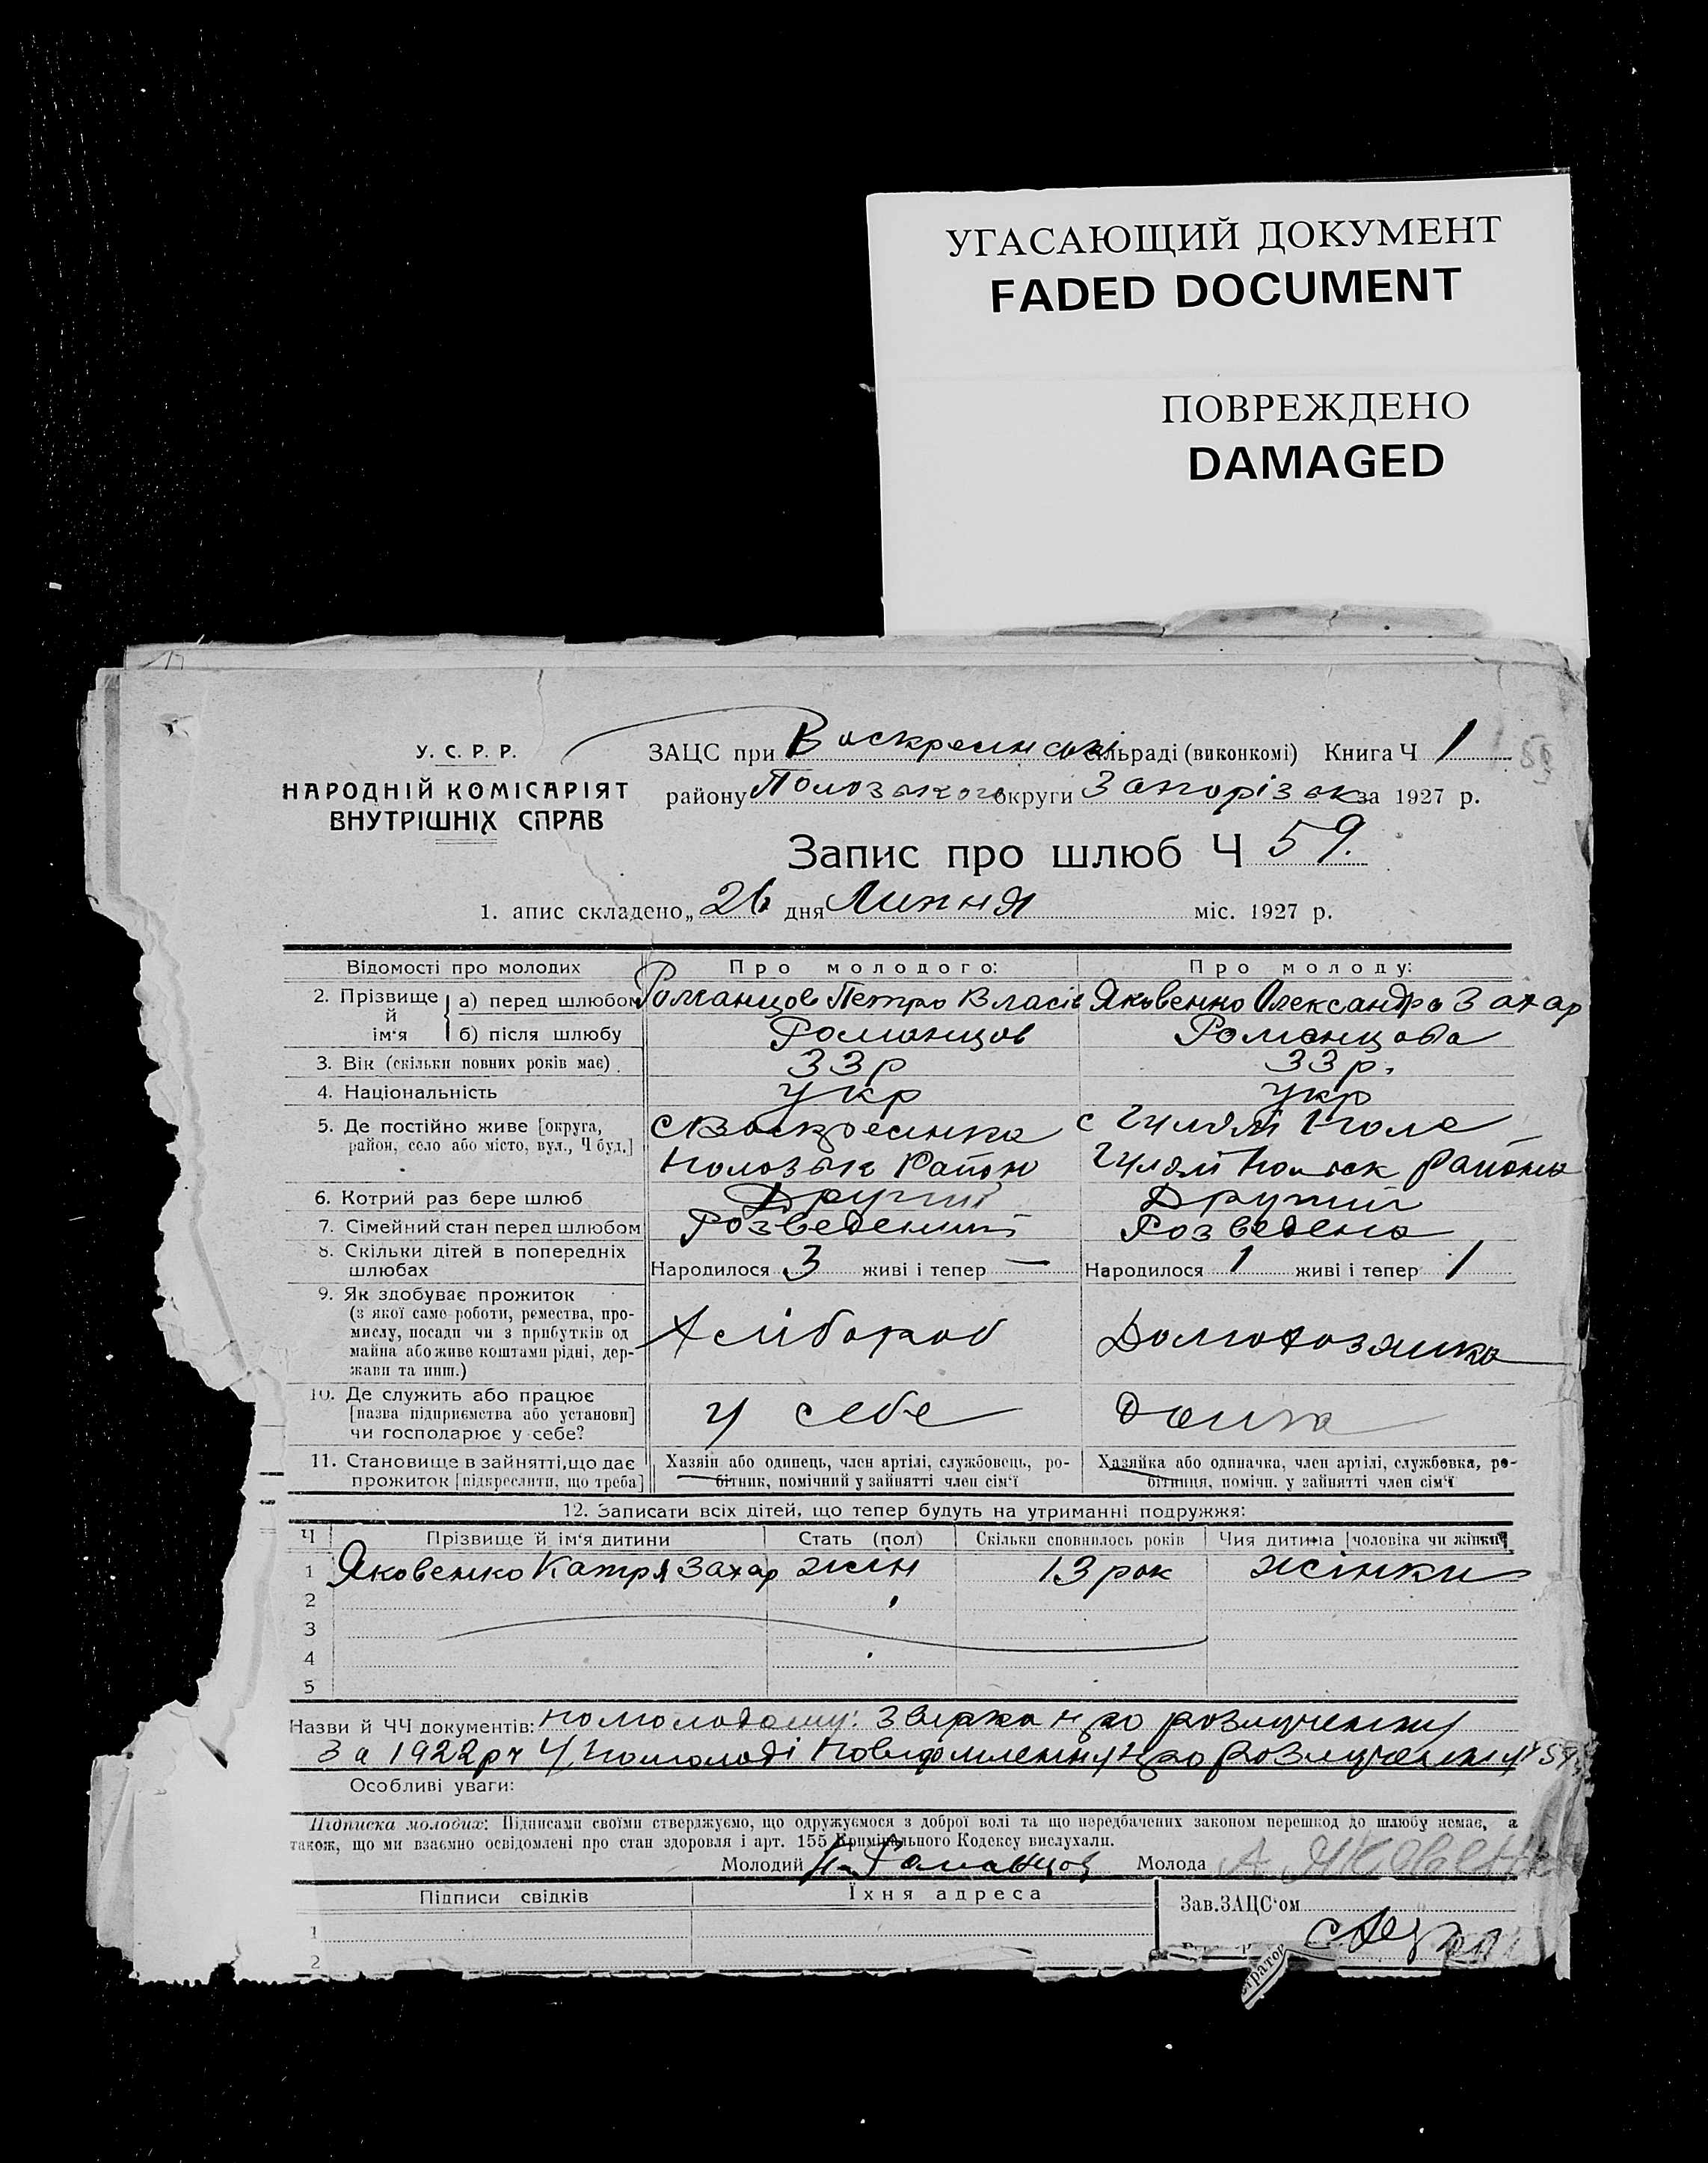 УГАСАЮЩИЙ ДОКУМЕНТ
FADED DOCUMENT
ПОВРЕЖДЕНО
DAMAGED
У. С. Р. Р.
НАРОДНІЙ КОМІСАРІЯТ
ВНУТРІШНІХ СПРАВ
ЗАЦС при Воскресинські сільраді (виконкомі) Книга Ч 1
району Полозького округи Запорізьк за 1927 р.
Запис про шлюб Ч 59.
1. апис складено „ 26 дня Липня міс. 1927 р.
Відомості про молодих Про молодого: Про молоду:
2. Прізвище й ім'я а) перед шлюбом Романцов Петро Власів Яковенко Олександра Захар
б) після шлюбу Романцов Романцова
3. Вік (скільки повних років має) 33 р 33 р.
4. Національність укр укр
5. Де постійно живе [округа, с Воскресинка с Гуляй Поле
район, село або місто, вул., Ч буд.] Полозьк Район Гуляй Польск Району
6. Котрий раз бере шлюб Другий Другий
7. Сімейний стан перед шлюбом Розведений Розведена
8. Скільки дітей в попередніх
шлюбах Народилося 3 живі і тепер — Народилося 1 живі і тепер 1
9. Як здобуває прожиток
(з якої саме роботи, ремества, про-
мислу, посади чи з прибутків од Хлібороб Домохозяйка
майна або живе коштами рідні, дер-
жави та инш.)
10. Де служить або працює
[назва підприємства або установи] у себе Дома
чи господарює у себе?
11. Становище в зайнятті, що дає Хазяїн або одинець, член артілі, службовець, ро- Хазяйка або одиначка, член артілі, службовка, ро-
прожиток [підкреслити, що треба] бітник, помічний у зайнятті член сім'ї бітниця, помічн. у зайнятті член сім'ї
12. Записати всіх дітей, що тепер будуть на утриманні подружжя:
Ч Прізвище й ім'я дитини Стать (пол) Скільки сповнилось років Чия дитина [чоловіка чи жінки]
1 Яковенко Катря Захар жін 13 рок жінки
2
3
4
5
Назви й ЧЧ документів: По молодому: З про розлучення
За 1922 р ч 4, По молоді Повідомлення про розлучення
Особливі уваги:
Підписка молодих: Підписами своїми стверджуємо, що одружуємося з доброї волі та що передбачених законом перешкод до шлюбу немає, а
також, що ми взаємно освідомлені про стан здоровля і арт. 155 Кримінального Кодексу вислухали.
Молодий П. Романцов Молода А Яковенко
Підписи свідків Їхня адреса Зав. ЗАЦС'ом
1
2